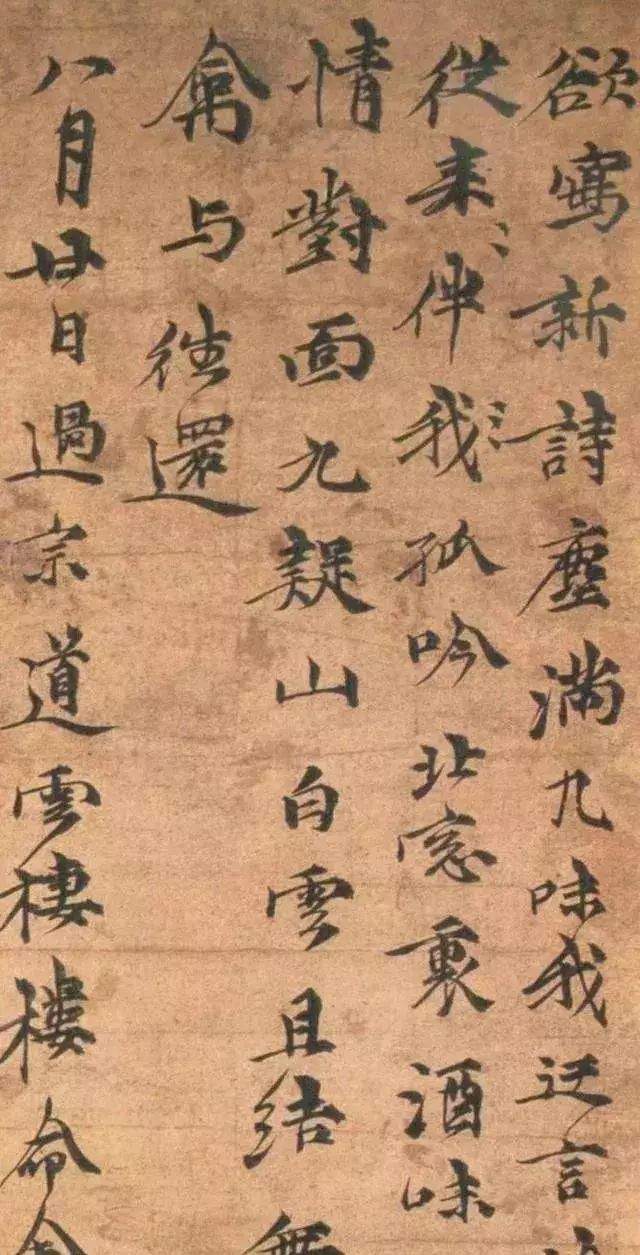 欲寫新詩塵滿几味我迂言
從来〻伴我〻孤吟北窓裏酒味
情對面九疑山白雲且結無
禽与往還
八月廿日過宗道雲棲樓命